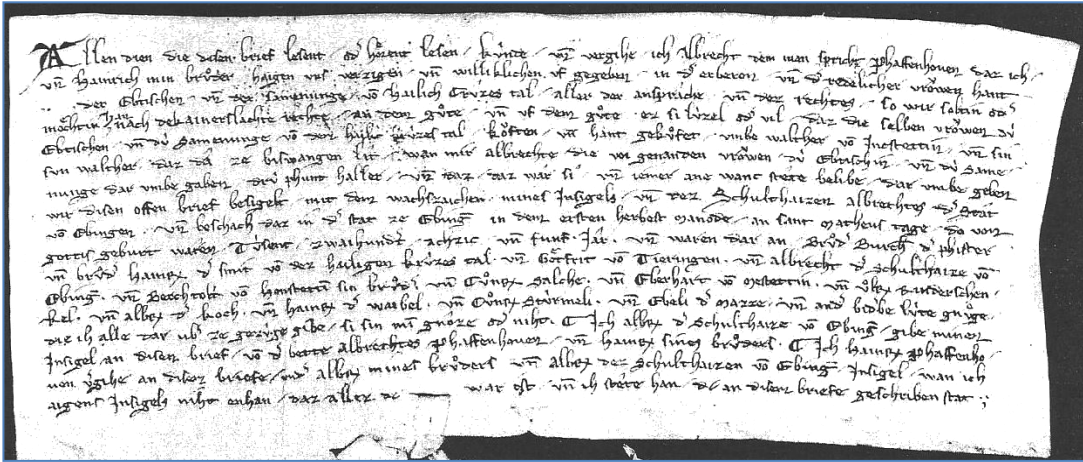 Allen dien die disen brief lesent / od hörent lesen / künde / vn̄ vergihe ich Albrecht dem man spricht Phaffenhouen dar ich /
vn̄ Hainrich min brůder haigen vns verzigen / vn̄ williklichen vf gegeben / in d' erberon / vn̄ d' redelicher vrŏwen hant
der Ebtischen / vn̄ der samenunge / vō Hailich Cruzes tal / aller der ansprache / vn̄ der rechtes / so wir soltan od'
möchtin han nach dekainerslachte rechte / an dem gůte / vn̄ vf dem gůte / er si luzel od' vil / daz die selben vrŏwen dv̓
Ebtischen / vn̄ dv̓ Samenunge / vō der hailig Cruzes tal / kŏften / vn̄ hant gekŏfet / vmbe walcher / vō Inostettin / vn̄ sin
sun walcher / dar da ze biswangen lit / wan mir Albrechte die vor genanden vrŏwen / dv̓ Ebtischin / vn̄ dv̓ Same /
nunge dar vmbe gaben / drv̓ phunt haller / vn̄ daz / daz war si / vn̄ iemer ane wanc stete belibe / dar vmbe geben
wir disen offen brief besigelt / mit dem wachszaichen / mines Insigels / vn̄ dez Schulthaizen albrechtes d' Stat
vō Ebingen / vn̄ beschach dar in d' stat ze Ebinḡ in dem ersten herbest manode / an sant Matheus tage / do von
gottis geburt waren / Tusent / zwaihundt̄ / achzic / vn̄ funf / Jar / vn̄ waren dar an / Brůd' Burch̄ d' phister
vn̄ brůd' hainr̄ d' smit vō der hailigen krůzes tal / vn̄ Götfrit vō Tieringen / vn̄ albrecht d' Schulthaize vō
Ebinḡ / vn̄ Berchtolt vō honstetin sin brůd' / vn̄ Cůnr̄ Salche / vn̄ Eberhart vō mestettin / vn̄ Vlr̄ Sunderschen /
kel / vn̄ albr̄ d' koch / vn̄ hainr̄ d' waibel / vn̄ Cůnr̄ Stůrmeli / vn̄ Ebeli d' Mazze / vn̄ and' bid'be lv̓te gnůge /
die ih alle dar vb' ze gezivge gibe / si sin mī gnoze od' niht / Ich albr̄ d' Schulthaize vō Ebinḡ / gibe minen
Insigel an disen brief / vō d' bette albrechtes phaffenhouen / vn̄ hainr̄ sines brůders / Ich hainr̄ phaffenho /
uen v'gihe an diser briefe / vnd' albr̄ mines brůders vn̄ albr̄ der Schulthaizen vō Ebinḡ / Insigel / wan ich
aigens Insigels niht enhan / daz aller dc war est / vn̄ ih stete han / dc an disem briefe geschriben stat